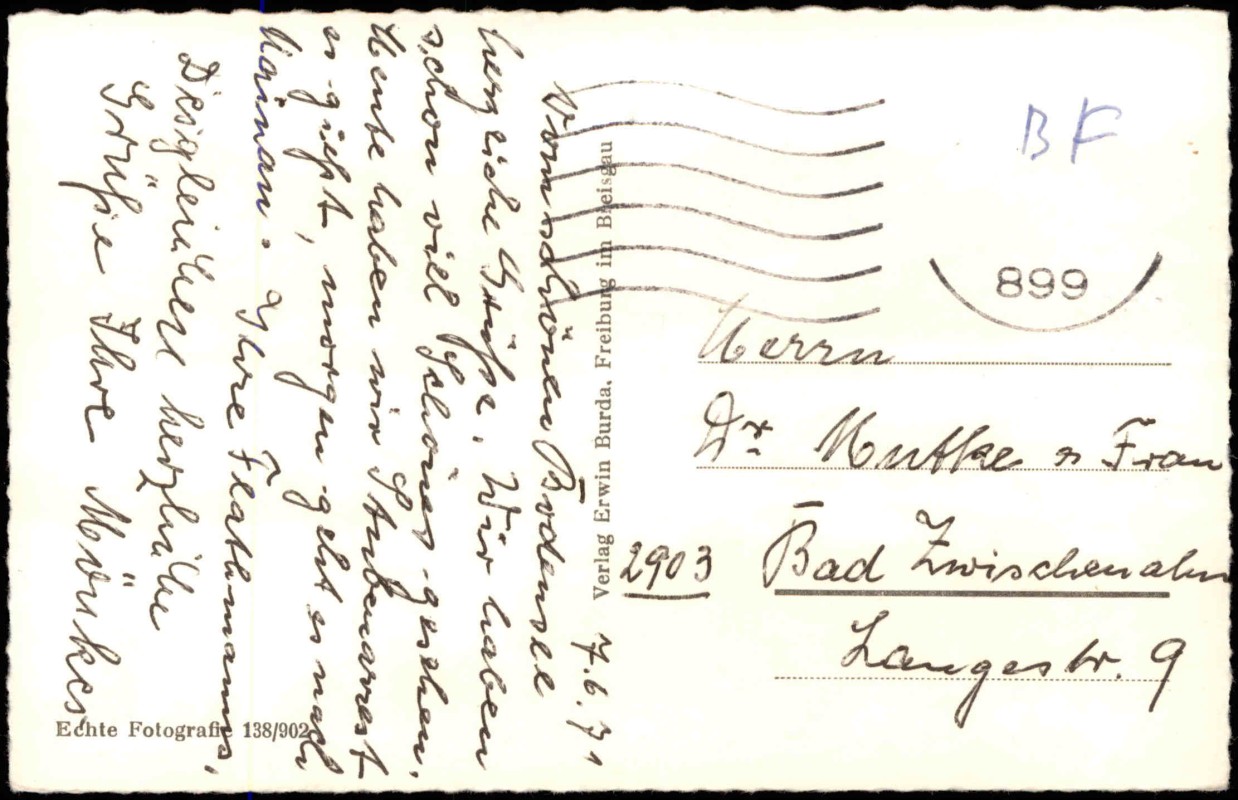 7.6.71
Vom schönen Bodensee
herzliche Grüße. Wir haben
schon viel Schönes gesehen.
Heute haben wir Stubenarrest
es gießt, morgen geht es nach
Mainau. Ihre Flathmanns.
Desgleichen herzliche
Grüße Ihre Mönkes
Echte Fotografie 138/902
Verlag Erwin Burda, Freiburg im Breisgau
BF
899
Herrn
Dr. Mutke u Frau
2903 Bad Zwischenahn
Langestr. 9